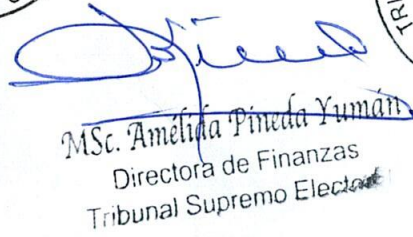 TRI
MSc. Amélida Pineda Yumán
Directora de Finanzas
Tribunal Supremo Electoral